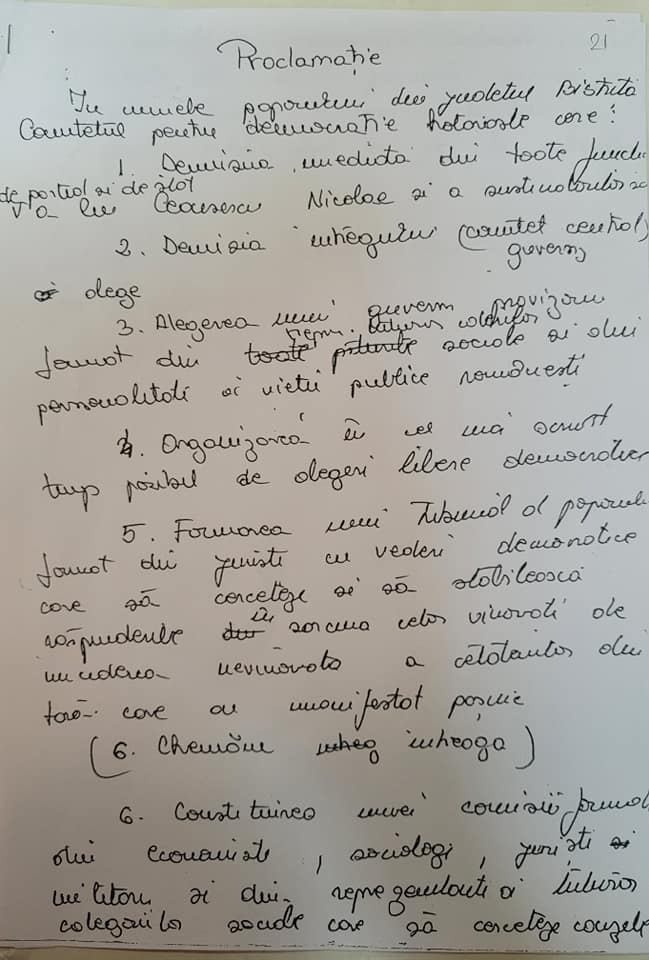 21
Proclamație
In numele poporului din județul Bistrița
Comitetul pentru democrație hotaraste cere:
1. Demisia imediata din toate functii
de partid si de stat
a lui Ceausescu Nicolae si a sustinatorilor
2. Demisia intregului (comitet central)
guvern
alege
3. Alegerea unui guvern provizoriu
repr. tuturor
format din toate păturile sociale si din
personalitati ai vietii publice românești
4. Organizarea în cel mai scurt
timp posibil de alegeri libere democratice
5. Formarea unui Tribunal al poporului
format din juristi cu vederi democratice
care să cerceteze si să stabilească
răspunderile din în sarcina celor vinovati de
uciderea nevinovata a cetătenilor din
tară care au manifestat pașnic
(6. Chemăm intreg intreaga)
6. Constituirea unei comisii format
din economisti, sociologi, juriști si
militari si din reprezentanti ai tuturor
categoriilor sociale care să cerceteze cauzele